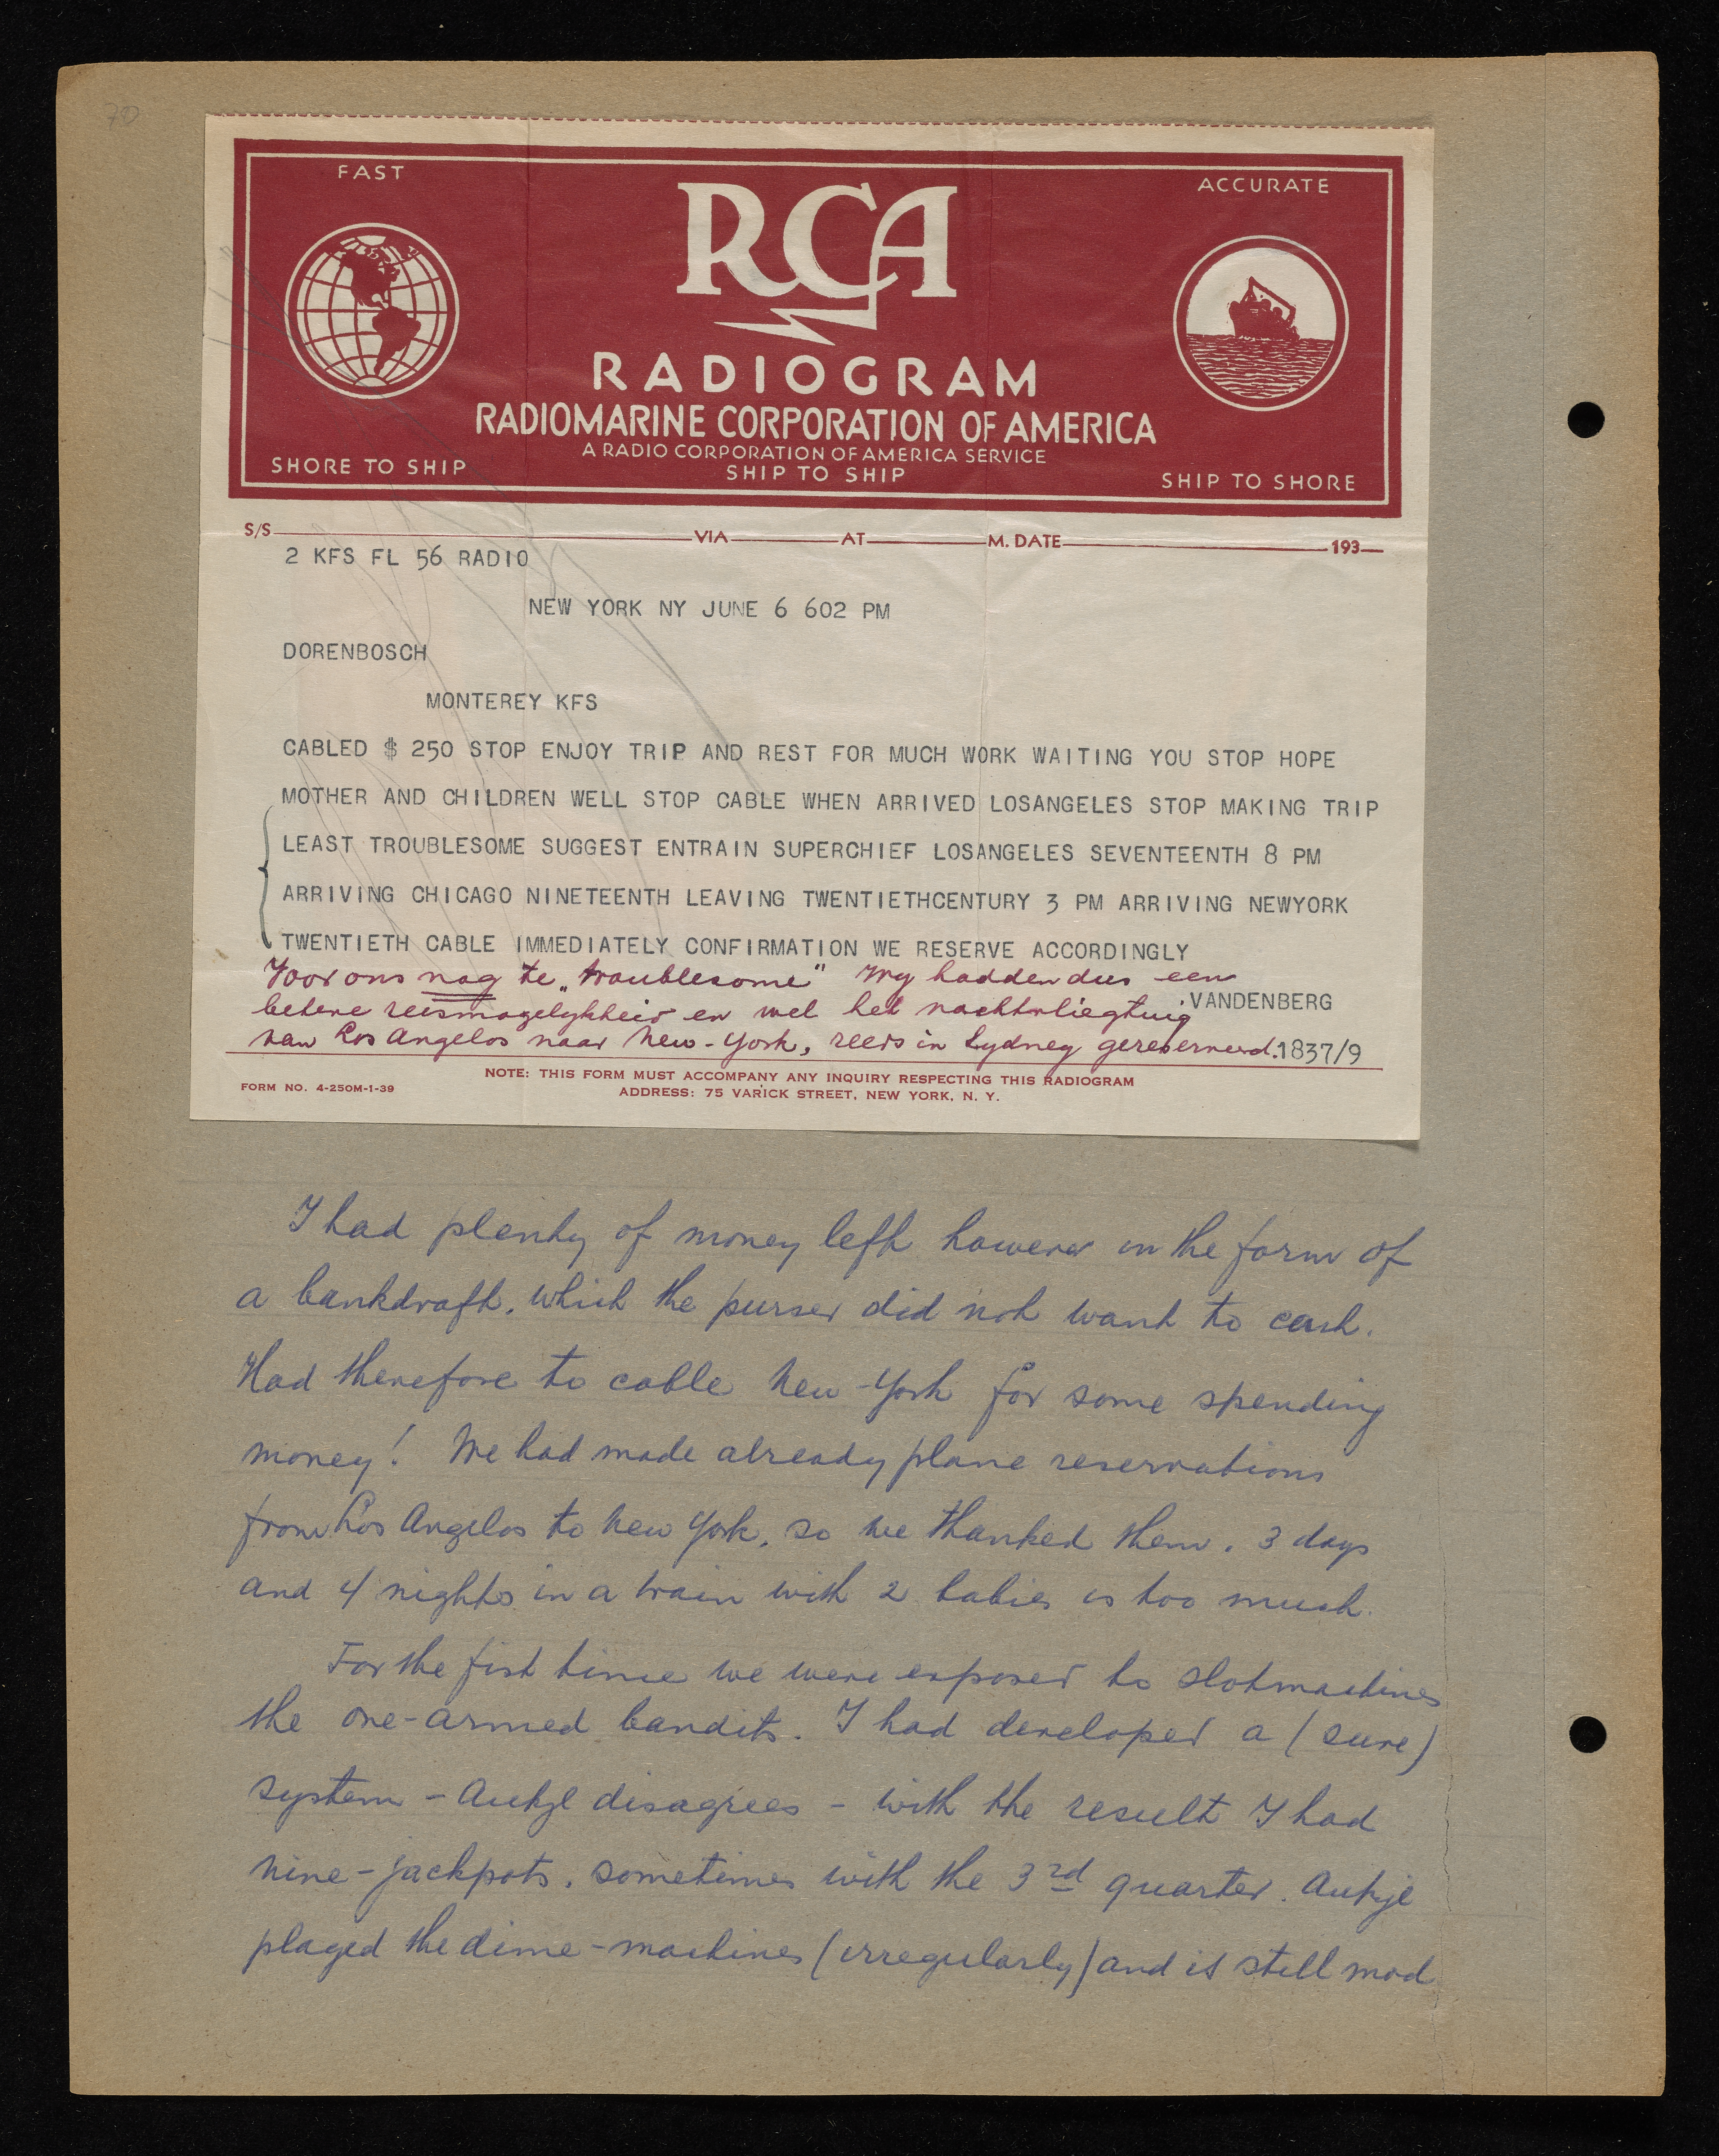 70
FAST
RCA
ACCURATE
RADIOGRAM
RADIOMARINE CORPORATION OF AMERICA
A RADIO CORPORATION OF AMERICA SERVICE
SHORE TO SHIP
SHIP TO SHIP
SHIP TO SHORE
S/S VIA AT M. DATE 193
2 KFS FL 56 RADIO
NEW YORK NY JUNE 6 602 PM
DORENBOSCH
MONTEREY KFS
CABLED $ 250 STOP ENJOY TRIP AND REST FOR MUCH WORK WAITING YOU STOP HOPE
MOTHER AND CHILDREN WELL STOP CABLE WHEN ARRIVED LOSANGELES STOP MAKING TRIP
LEAST TROUBLESOME SUGGEST ENTRAIN SUPERCHIEF LOSANGELES SEVENTEENTH 8 PM
ARRIVING CHICAGO NINETEENTH LEAVING TWENTIETHCENTURY 3 PM ARRIVING NEWYORK
TWENTIETH CABLE IMMEDIATELY CONFIRMATION WE RESERVE ACCORDINGLY
Voor ons nog te „troublesome" Wy hadden dus een
betere reismogelykheid en wel het nachtvliegtuig
VANDENBERG
van Los Angelos naar New-York, reeds in Sydney gereserveerd.
1837/9
NOTE: THIS FORM MUST ACCOMPANY ANY INQUIRY RESPECTING THIS RADIOGRAM
FORM NO. 4-250M-1-39
ADDRESS: 75 VARICK STREET, NEW YORK, N. Y.
I had plenty of money left however in the form of
a bankdraft, which the purser did not want to cash.
Had therefore to cable New-York for some spending
money! We had made already plane reservations
from Los Angelos to New York, so we thanked them. 3 days
and 4 nights in a train with 2 babies is too much.
For the fist time we were exposed to slotmachines
the one-armed bandits. I had developed a (sure)
system - Aukje disagrees - with the result I had
nine-jackpots, sometimes with the 3rd quarter. Aukje
played the dime-machines (irregularly) and is still mad